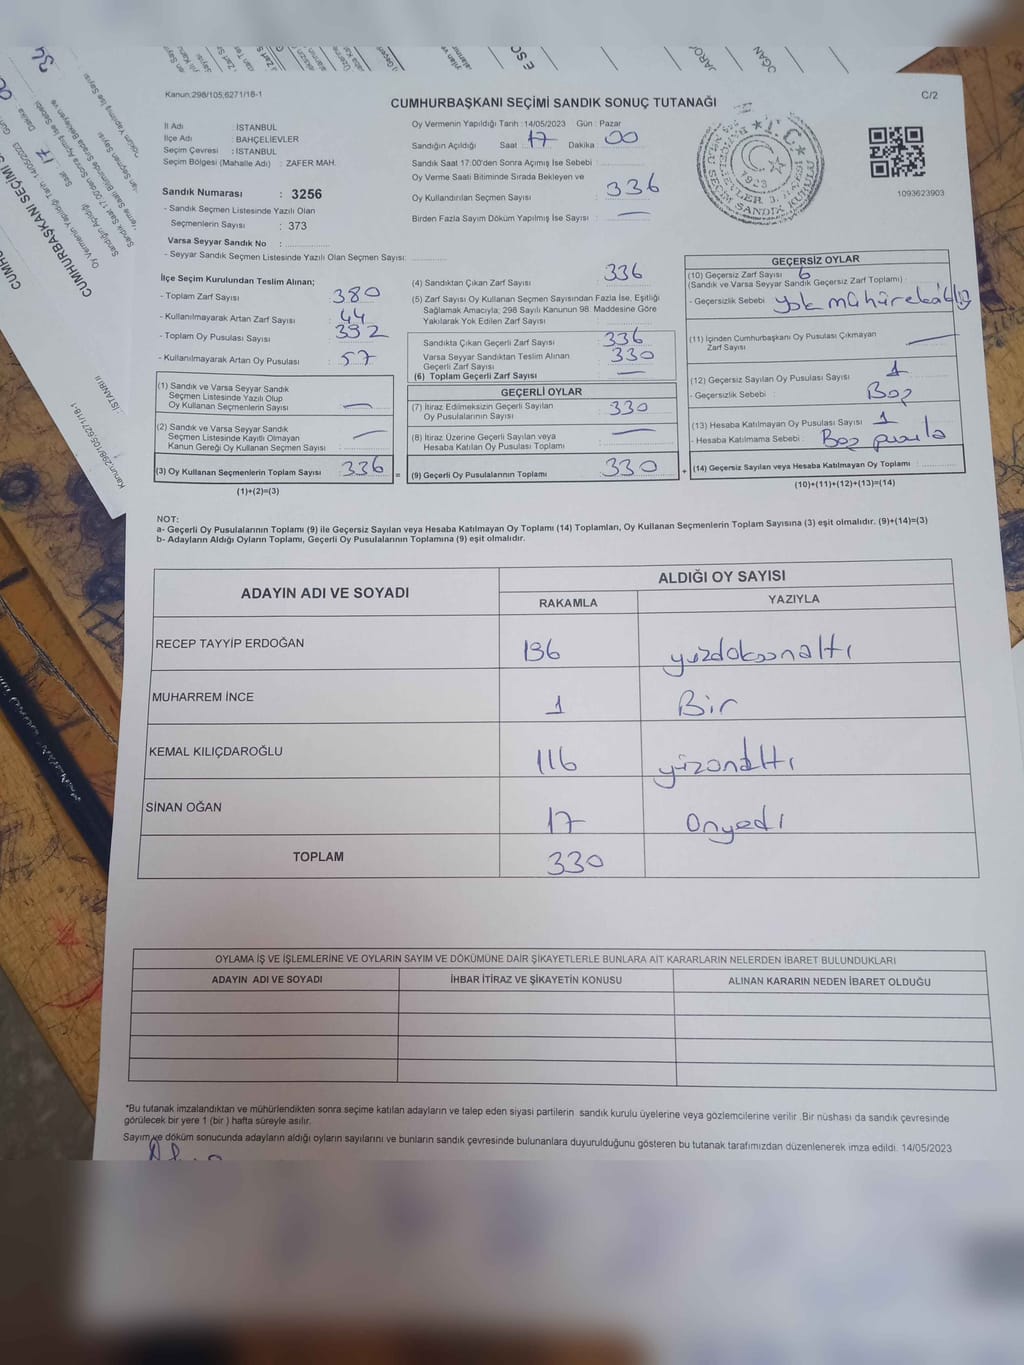 Kanun:298/105;6271/18-1
CUMHURBAŞKANI SEÇİMİ SANDIK SONUÇ TUTANAĞI
C/2
İl Adı : İSTANBUL
İlçe Adı : BAHÇELİEVLER
Seçim Çevresi : İSTANBUL
Seçim Bölgesi (Mahalle Adı) : ZAFER MAH.
Sandık Numarası : 3256
- Sandık Seçmen Listesinde Yazılı Olan
Seçmenlerin Sayısı : 373
Varsa Seyyar Sandık No :
- Seyyar Sandık Seçmen Listesinde Yazılı Olan Seçmen Sayısı:
Oy Vermenin Yapıldığı Tarih :14/05/2023 Gün : Pazar
Sandığın Açıldığı Saat : 17 Dakika : 00
Sandık Saat 17:00'den Sonra Açımış İse Sebebi :
Oy Verme Saati Bitiminde Sırada Bekleyen ve
Oy Kullandırılan Seçmen Sayısı : 336
Birden Fazla Sayım Döküm Yapılmış İse Sayısı : —
1093623903
İlçe Seçim Kurulundan Teslim Alınan;
- Toplam Zarf Sayısı : 380
- Kullanılmayarak Artan Zarf Sayısı : 44
- Toplam Oy Pusulası Sayısı : 392
- Kullanılmayarak Artan Oy Pusulası : 57
(1) Sandık ve Varsa Seyyar Sandık
Seçmen Listesinde Yazılı Olup
Oy Kullanan Seçmenlerin Sayısı : —
(2) Sandık ve Varsa Seyyar Sandık
Seçmen Listesinde Kayıtlı Olmayan
Kanun Gereği Oy Kullanan Seçmen Sayısı : —
(3) Oy Kullanan Seçmenlerin Toplam Sayısı : 336
(1)+(2)=(3)
(4) Sandıktan Çıkan Zarf Sayısı : 336
(5) Zarf Sayısı Oy Kullanan Seçmen Sayısından Fazla İse, Eşitliği
Sağlamak Amacıyla; 298 Sayılı Kanunun 98. Maddesine Göre
Yakılarak Yok Edilen Zarf Sayısı :
Sandıkta Çıkan Geçerli Zarf Sayısı : 336
Varsa Seyyar Sandıktan Teslim Alınan
Geçerli Zarf Sayısı : 330
(6) Toplam Geçerli Zarf Sayısı : —
GEÇERLİ OYLAR
(7) İtiraz Edilmeksizin Geçerli Sayılan
Oy Pusulalarının Sayısı : 330
(8) İtiraz Üzerine Geçerli Sayılan veya
Hesaba Katılan Oy Pusulası Toplamı : —
= (9) Geçerli Oy Pusulalarının Toplamı : 330
GEÇERSİZ OYLAR
(10) Geçersiz Zarf Sayısı : 6
(Sandık ve Varsa Seyyar Sandık Geçersiz Zarf Toplamı)
- Geçersizlik Sebebi : yok
(11) İçinden Cumhurbaşkanı Oy Pusulası Çıkmayan
Zarf Sayısı : —
(12) Geçersiz Sayılan Oy Pusulası Sayısı : 1
- Geçersizlik Sebebi : Boş
(13) Hesaba Katılmayan Oy Pusulası Sayısı : 1
- Hesaba Katılmama Sebebi : Boş pusula
+ (14) Geçersiz Sayılan veya Hesaba Katılmayan Oy Toplamı :
(10)+(11)+(12)+(13)=(14)
NOT:
a- Geçerli Oy Pusulalarının Toplamı (9) ile Geçersiz Sayılan veya Hesaba Katılmayan Oy Toplamı (14) Toplamları, Oy Kullanan Seçmenlerin Toplam Sayısına (3) eşit olmalıdır. (9)+(14)=(3)
b- Adayların Aldığı Oyların Toplamı, Geçerli Oy Pusulalarının Toplamına (9) eşit olmalıdır.
ADAYIN ADI VE SOYADI
ALDIĞI OY SAYISI
RAKAMLA YAZIYLA
RECEP TAYYİP ERDOĞAN 196 yüzdoksanaltı
MUHARREM İNCE 1 Bir
KEMAL KILIÇDAROĞLU 116 yüzonaltı
SİNAN OĞAN 17 Onyedi
TOPLAM 330
OYLAMA İŞ VE İŞLEMLERİNE VE OYLARIN SAYIM VE DÖKÜMÜNE DAİR ŞİKAYETLERLE BUNLARA AİT KARARLARIN NELERDEN İBARET BULUNDUKLARI
ADAYIN ADI VE SOYADI İHBAR İTİRAZ VE ŞİKAYETİN KONUSU ALINAN KARARIN NEDEN İBARET OLDUĞU
*Bu tutanak imzalandıktan ve mühürlendikten sonra seçime katılan adayların ve talep eden siyasi partilerin sandık kurulu üyelerine veya gözlemcilerine verilir .Bir nüshası da sandık çevresinde
görülecek bir yere 1 (bir ) hafta süreyle asılır.
Sayım ve döküm sonucunda adayların aldığı oyların sayılarını ve bunların sandık çevresinde bulunanlara duyurulduğunu gösteren bu tutanak tarafımızdan düzenlenerek imza edildi. 14/05/2023